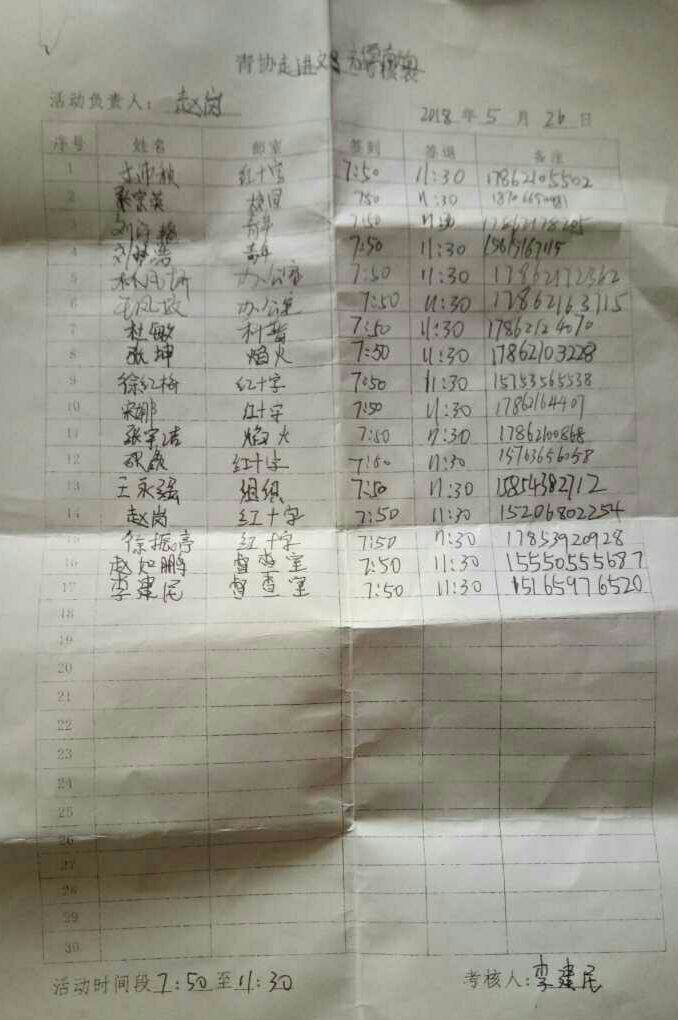 青协走进
活动负责人： 赵岗
2018 年 5 月 26 日
序号 姓名 部室 签到 签退 备注
1 红十字 7:50 11:30 17862105502
2 张宗英 校园 750 11:30
3 青年 7:50 11:30
4 青年 7:50 11:30
5 办公室 7:50 11:30 17862172362
6 办公室 7:50 11:30 17862163715
7 杜敏 科普 7:50 11:30 17862124070
8 张坤 焰火 7:50 11:30 17862103228
9 徐红梅 红十字 7:50 11:30 15753565538
10 宋娜 红十字 7:50 11:30 17862164407
11 张宇洁 焰火 7:50 11:30 17862100868
12 红十字 7:50 11:30 15763656058
13 王永强 组织 7:50 11:30 15854382712
14 赵岗 红十字 7:50 11:30 15206802254
15 徐振亭 红十字 7:50 11:30 17853920928
16 赵如鹏 督查室 7:50 11:30 15550555687
17 李建民 督查室 7:50 11:30 15165976520
18
19
20
21
22
23
24
25
26
27
28
29
30
活动时间段 7:50 至 11:30 考核人： 李建民